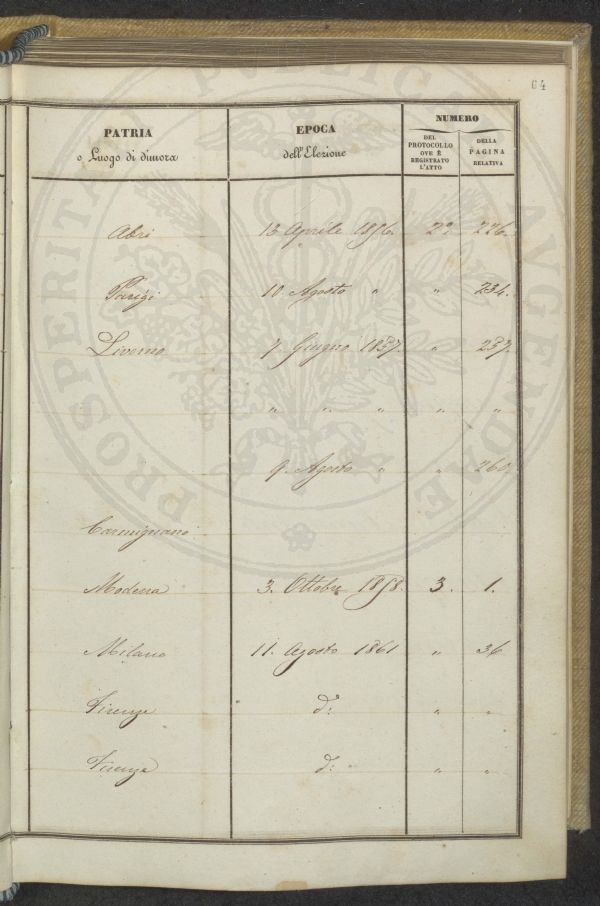 64
PATRIA
o Luogo di dimora
EPOCA
dell'Elezione
NUMERO
DEL
PROTOCOLLO
OVE È
REGISTRATO
L'ATTO
DELLA
PAGINA
RELATIVA
PROSPERITATI PUBLICAE AUGENDAE
13 Aprile 1856. 2°. 226.
Parigi 10. Agosto " " 234.
Livorno 7. Giugno 1857. " 257.
" " " " "
9. Agosto " " 260
Carmignano
Modena 3. Ottobre 1858. 3. 1.
Milano 11. Agosto 1861 " 36
Firenze d: " "
Firenze d: " "